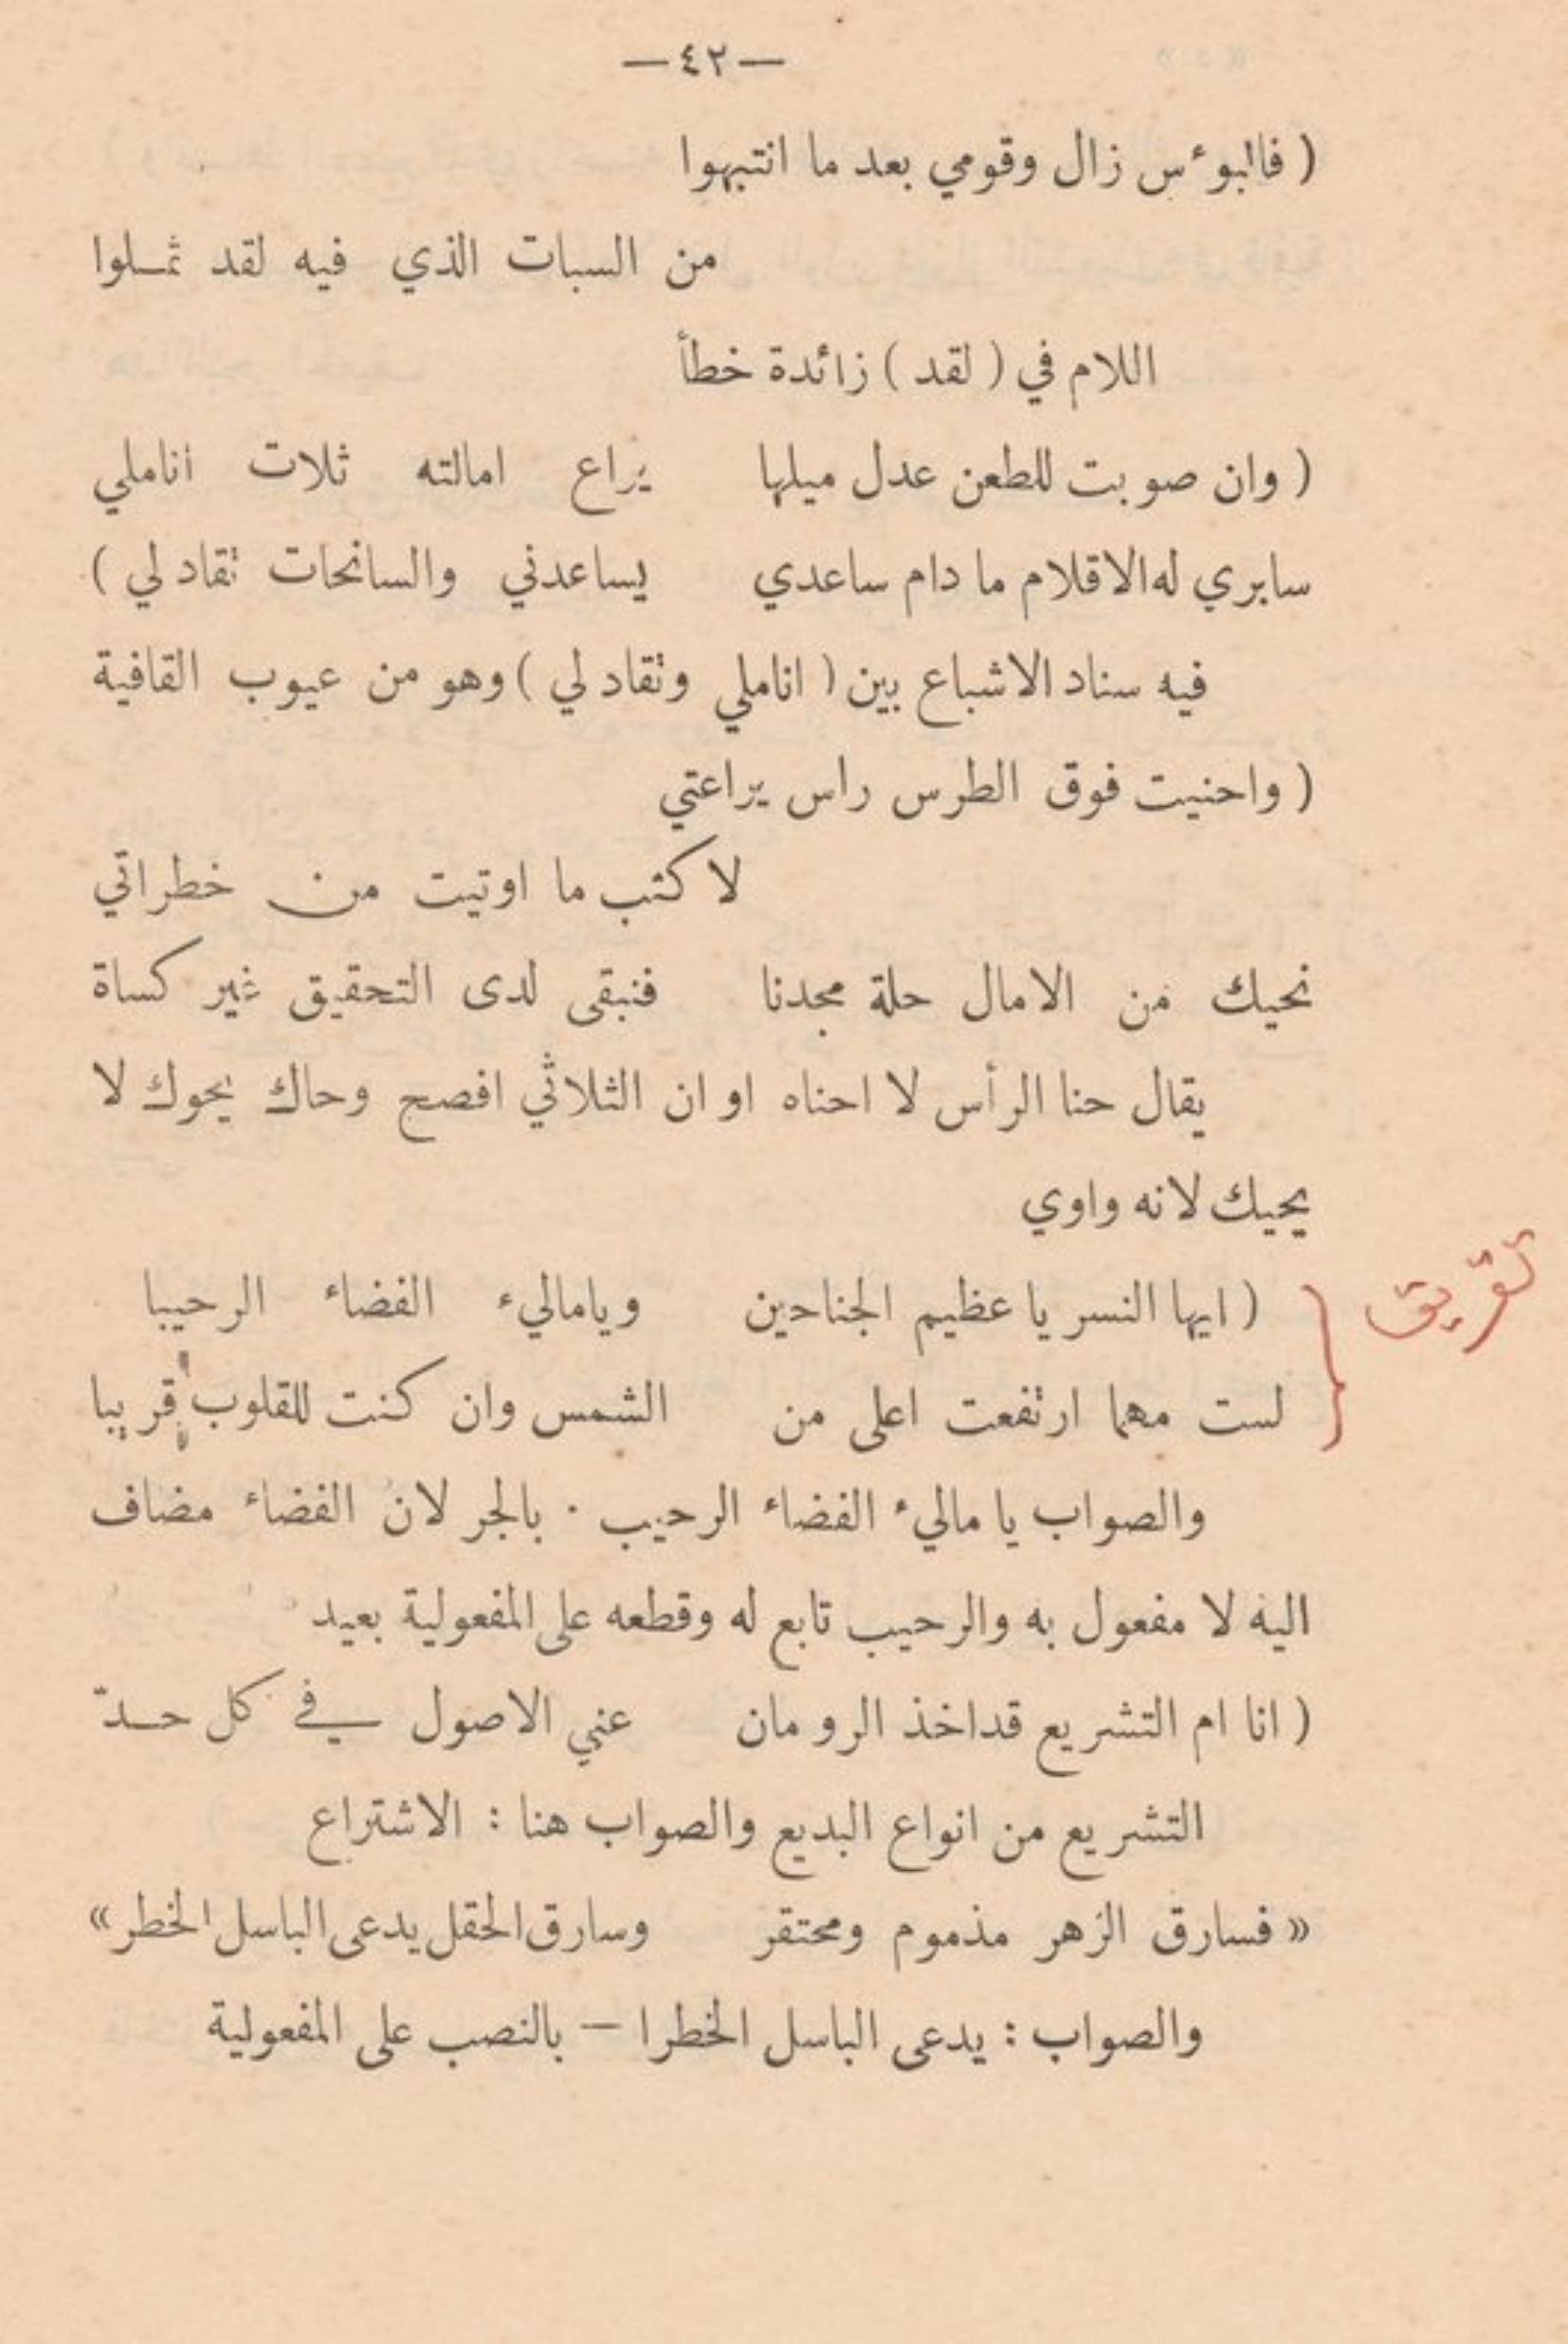 — ٤٢ —
( فالبوءس زال وقومي بعد ما انتبهوا
من السبات الذي فيه لقد ثملوا
اللام في ( لقد ) زائدة خطأ
( وان صوبت للطعن عدل ميلها يراع امالته ثلاث اناملي
سابري له الاقلام ما دام ساعدي يساعدني والسانحات تقاد لي )
فيه سناد الاشباع بين ( اناملي وتقاد لي ) وهو من عيوب القافية
( واحنيت فوق الطرس راس يراعتي
لاكتب ما اوتيت من خطراتي
نحيك من الامال حلة مجدنا فنبقى لدى التحقيق غير كساة
يقال حنا الرأس لا احناه او ان الثلاثي افصح وحاك يحوك لا
يحيك لانه واوي
( ايها النسر يا عظيم الجناحين ويامالىء الفضاء الرحيبا
لست مهما ارتفعت اعلى من الشمس وان كنت للقلوب قريبا
والصواب يا مالىء الفضاء الرحيب . بالجر لان الفضاء مضاف
اليه لا مفعول به والرحيب تابع له وقطعه على المفعولية بعيد
( انا ام التشريع قد اخذ الرومان عني الاصول في كل حدّ
التشريع من انواع البديع والصواب هنا : الاشتراع
« فسارق الزهر مذموم ومحتقر وسارق الحقل يدعى الباسل الخطر »
والصواب : يدعى الباسل الخطرا — بالنصب على المفعولية